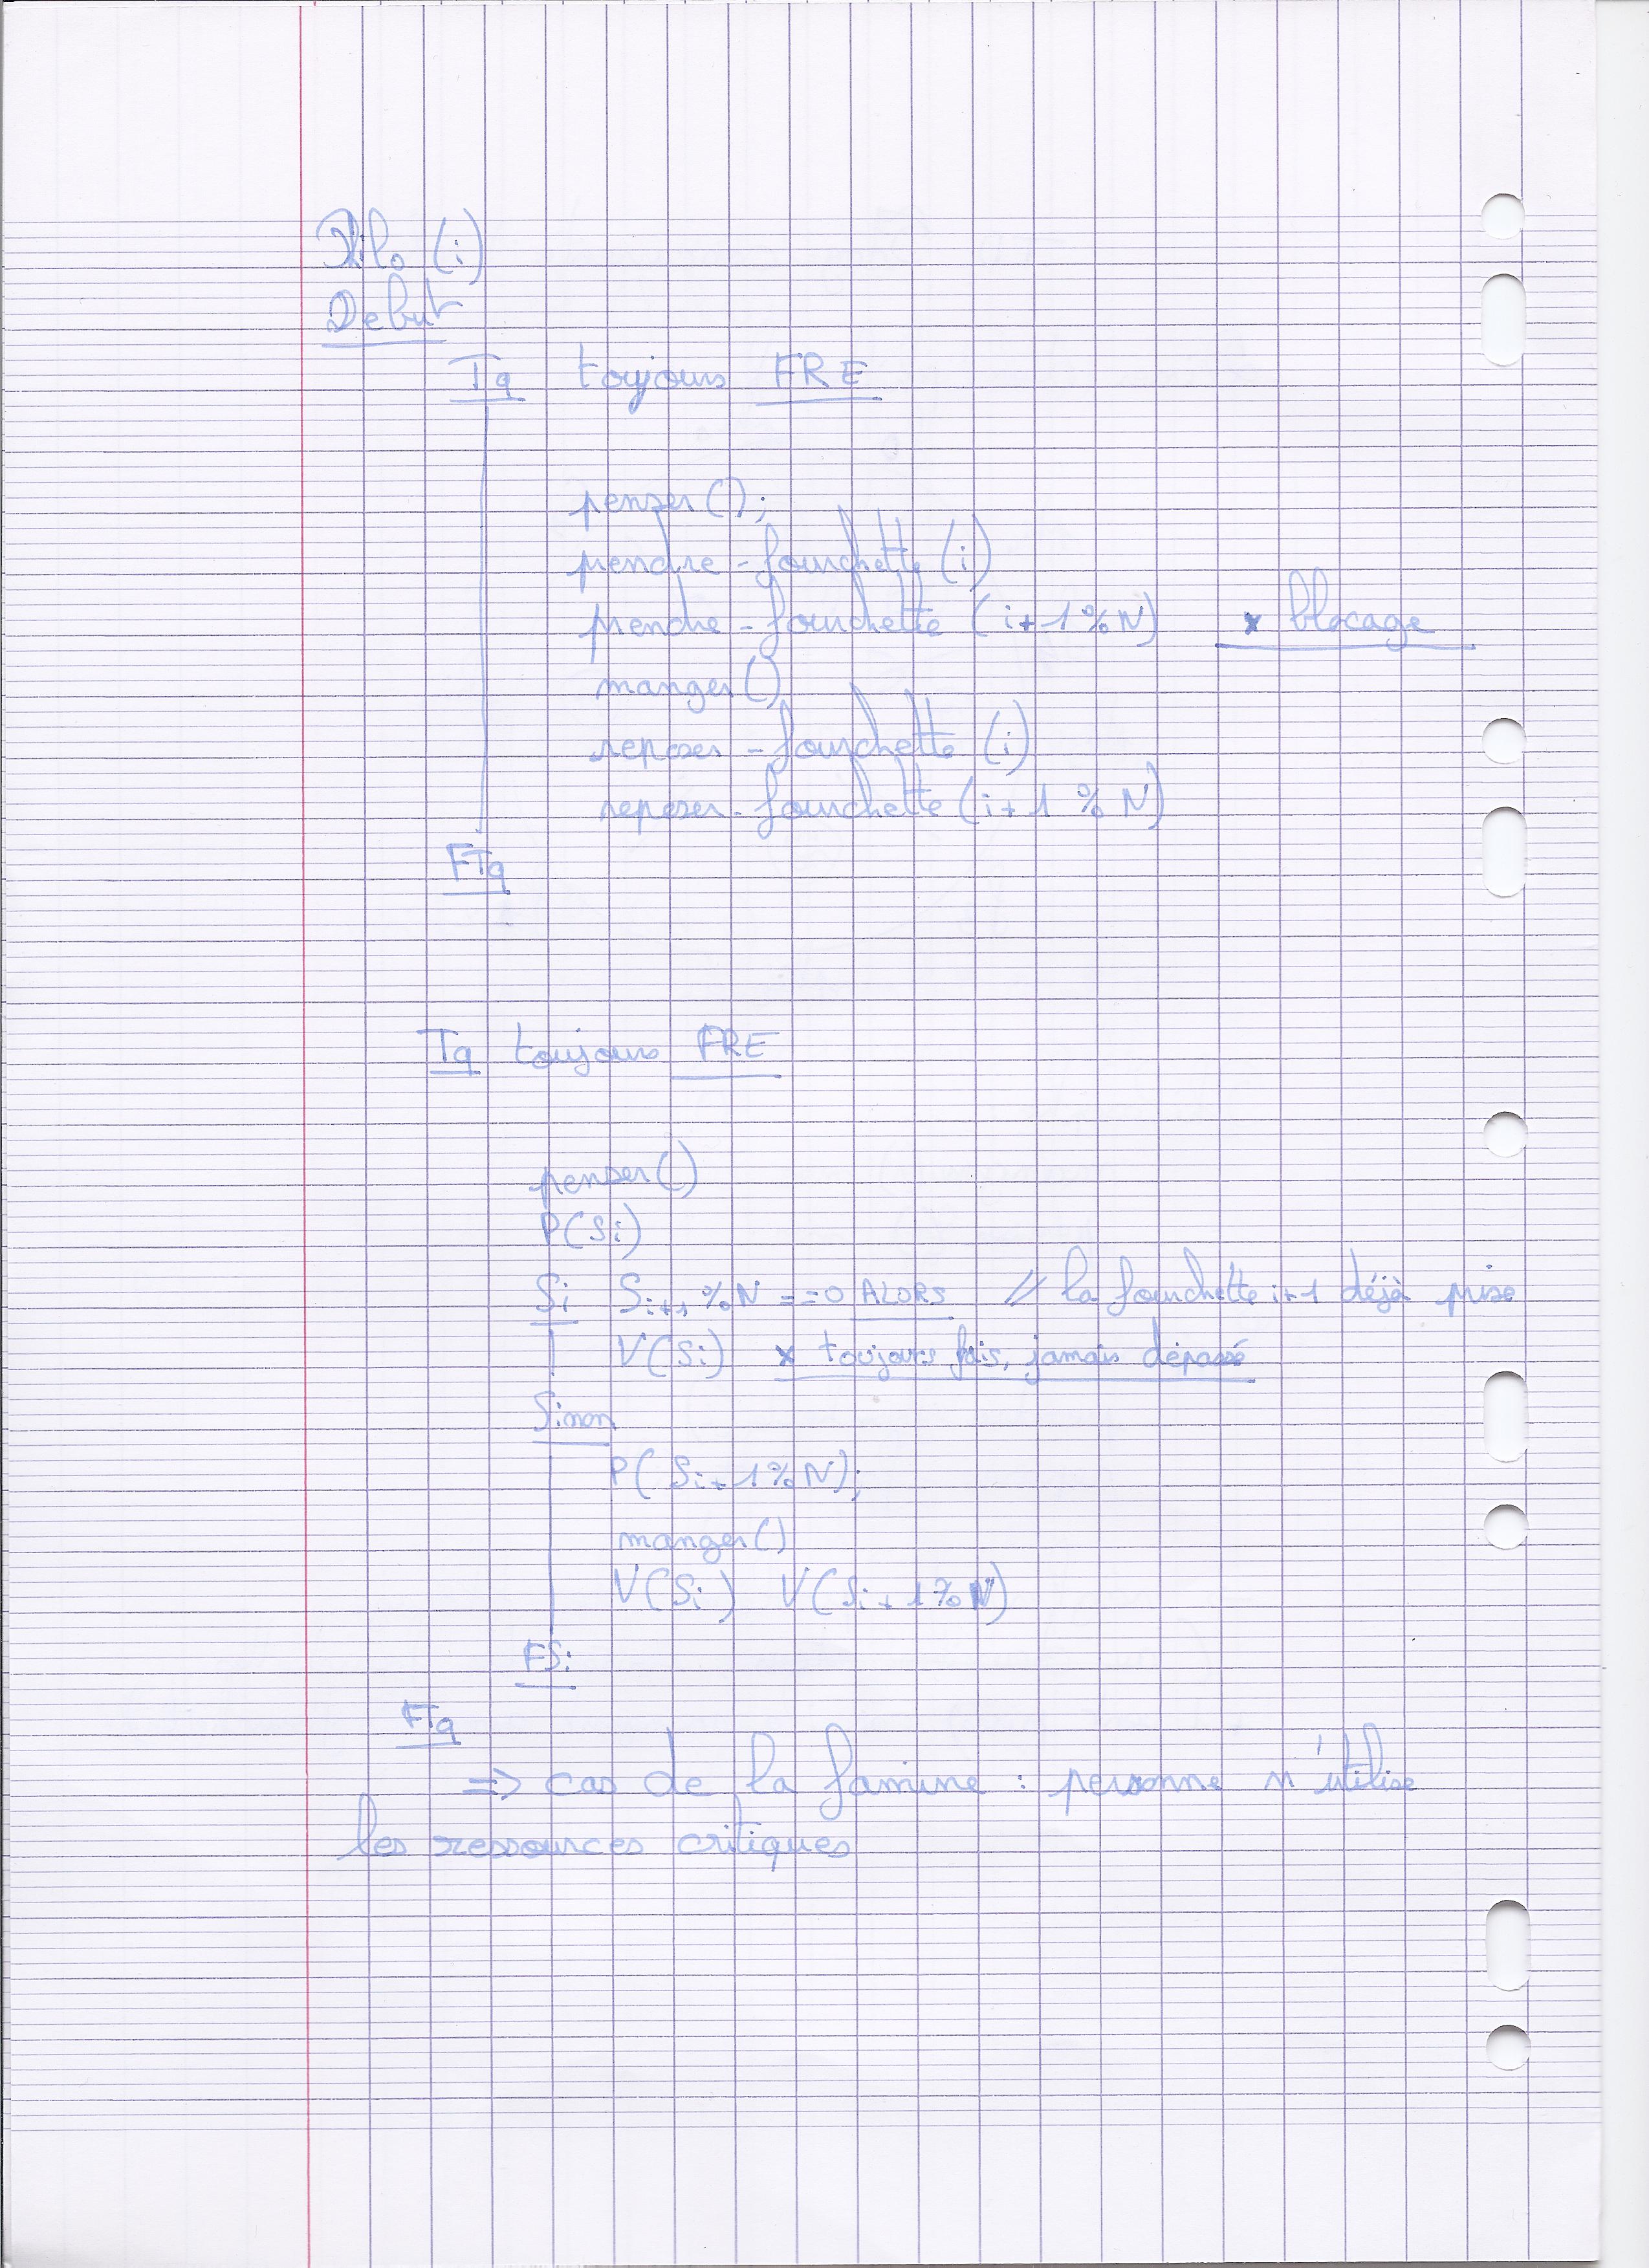 Philo (i)
Debut
Tq toujours FRE
penser();
prendre-fourchette (i)
prendre-fourchette (i+1%N) x blocage
manger()
reposer-fourchette (i)
reposer-fourchette (i+1 % N)
FTq
Tq toujours FRE
penser()
P(Si)
Si Si+1%N ==0 ALORS // la fourchette i+1 déjà prise
V(Si) x toujours fais, jamais dépassé
Sinon
P(Si+1%N);
manger()
V(Si) V(Si+1%N)
FSi
FTq
=> cas de la famine : personne n'utilise
les ressources critiques